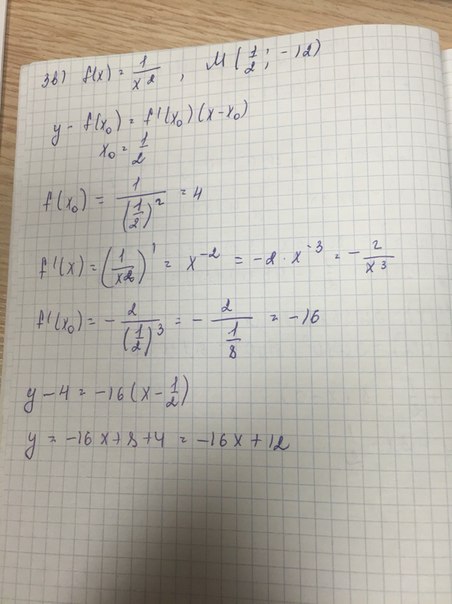 3в) f(x) = 1/x², M(1/2; -12)
y - f(x₀) = f'(x₀)(x-x₀)
x₀ = 1/2
f(x₀) = 1/(1/2)² = 4
f'(x) = (1/x²)' = x⁻² = -2 · x⁻³ = - 2/x³
f'(x₀) = - 2/(1/2)³ = - 2/(1/8) = -16
y - 4 = -16(x - 1/2)
y = -16x + 8 + 4 = -16x + 12